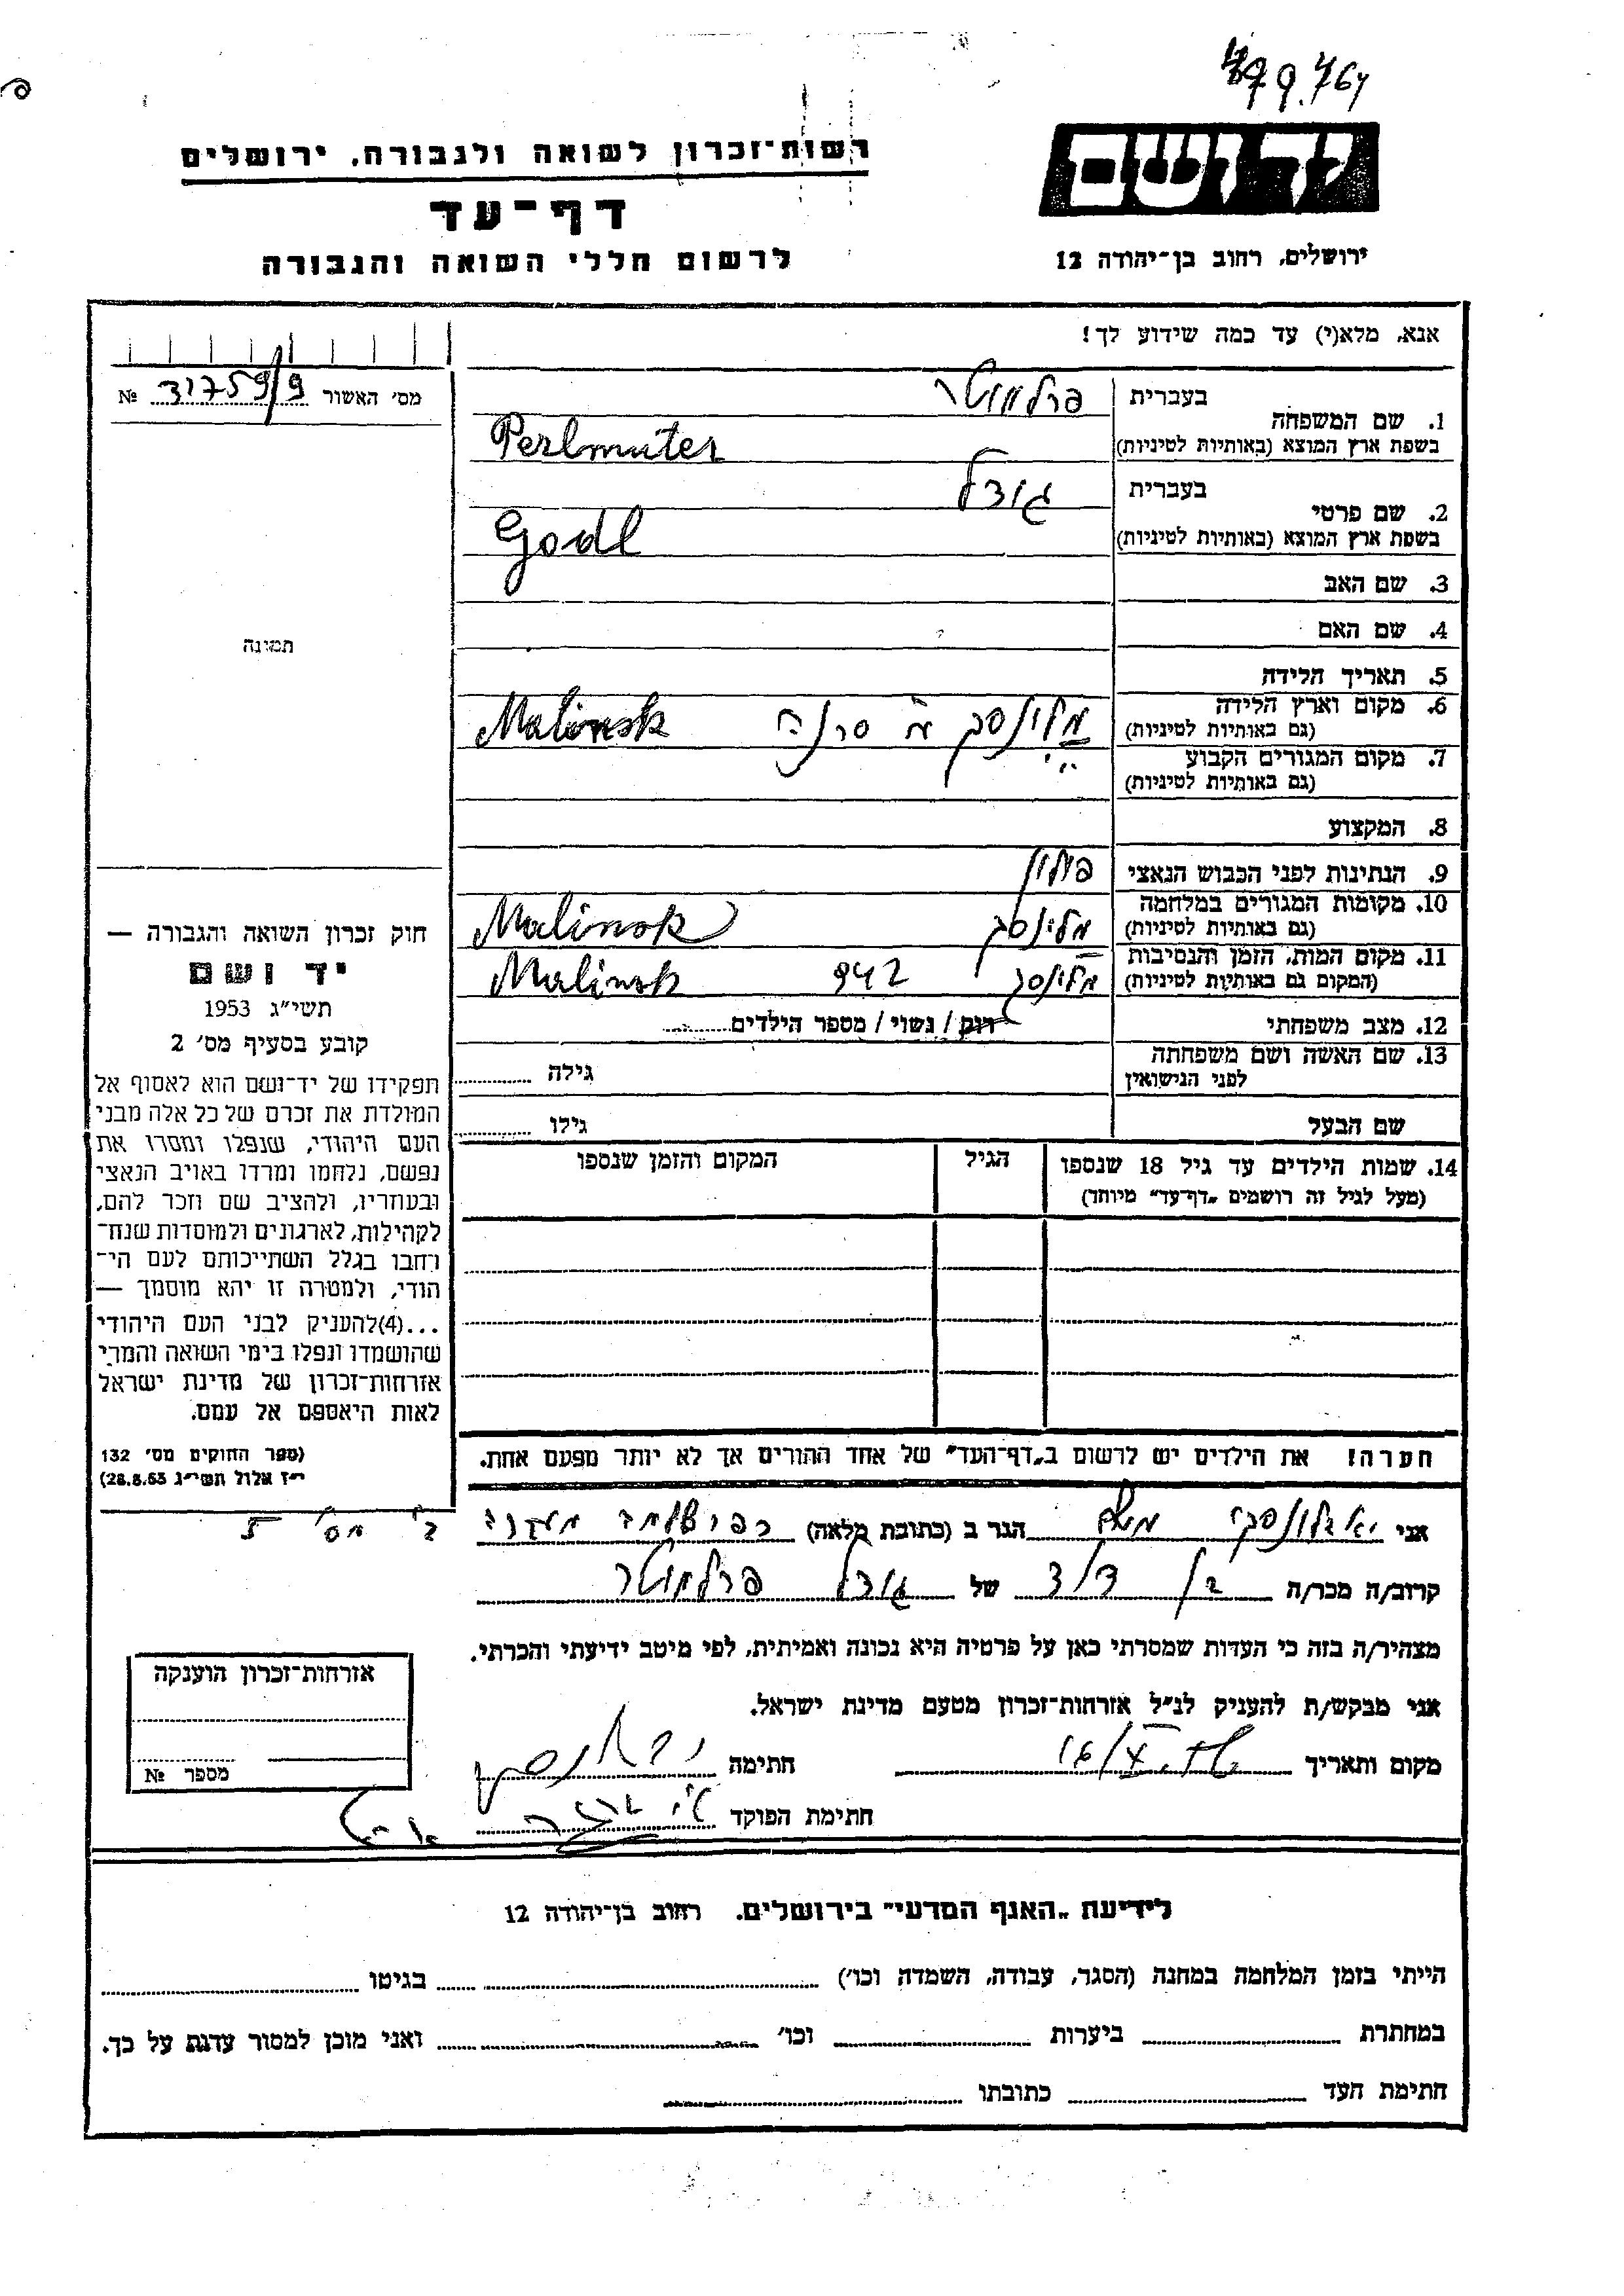 479.764
רשות-זכרון לשואה ולגבורה, ירושלים
ידושם
דף-עד
ירושלים, רחוב בן-יהודה 12
לרשום חללי השואה והגבורה
אנא, מלא(י) עד כמה שידוע לך!
מס׳ האשור 31759/9 №
בעברית פרלמוטר
1. שם המשפחה
בשפת ארץ המוצא (באותיות לטיניות) Perlmuter
בעברית גודל
2. שם פרטי
בשפת ארץ המוצא (באותיות לטיניות) Godl
3. שם האב
4. שם האם
תמונה
5. תאריך הלידה
6. מקום וארץ הלידה
(גם באותיות לטיניות) מלינסק Malinsk
7. מקום המגורים הקבוע
(גם באותיות לטיניות)
8. המקצוע
9. הנתינות לפני הכבוש הנאצי פולין
10. מקומות המגורים במלחמה
(גם באותיות לטיניות) מלינסק Malinsk
11. מקום המות, הזמן והנסיבות
(המקום גם באותיות לטיניות) מלינסק 942 Malinsk
12. מצב משפחתי רווק / נשוי / מספר הילדים
13. שם האשה ושם משפחתה
לפני הנישואין גילה
שם הבעל גילו
14. שמות הילדים עד גיל 18 שנספו הגיל המקום והזמן שנספו
(מעל לגיל זה רושמים „דף-עד״ מיוחד)
חוק זכרון השואה והגבורה —
יד ושם
תשי״ג 1953
קובע בסעיף מס׳ 2
תפקידו של יד-ושם הוא לאסוף אל
המולדת את זכרם של כל אלה מבני
העם היהודי, שנפלו ומסרו את
נפשם, נלחמו ומרדו באויב הנאצי
ובעוזריו, ולהציב שם וזכר להם,
לקהילות, לארגונים ולמוסדות שנח-
רחבו בגלל השתייכותם לעם הי-
הודי, ולמטרה זו יהא מוסמך —
...(4)להעניק לבני העם היהודי
שהושמדו ונפלו בימי השואה והמרי
אזרחות-זכרון של מדינת ישראל
לאות היאספם אל עמם.
(ספר החוקים מס׳ 132
י״ז אלול תשי״ג 28.8.53)
הערה! את הילדים יש לרשום ב„דף-העד״ של אחד ההורים אך לא יותר מפעם אחת.
אני הגר ב (כתובת מלאה)
קרוב/ה מכר/ה בן דוד של גודל פרלמוטר
מצהיר/ה בזה כי העדות שמסרתי כאן על פרטיה היא נכונה ואמיתית, לפי מיטב ידיעתי והכרתי.
אני מבקש/ת להעניק לנ״ל אזרחות-זכרון מטעם מדינת ישראל.
מקום ותאריך חתימה
חתימת הפוקד
אזרחות-זכרון הוענקה
מספר №
לידיעת „האגף המדעי״ בירושלים. רחוב בן-יהודה 12
הייתי בזמן המלחמה במחנה (הסגר, עבודה, השמדה וכו׳) בגיטו
במחתרת ביערות וכו׳ ואני מוכן למסור עדות על כך.
חתימת העד כתובתו